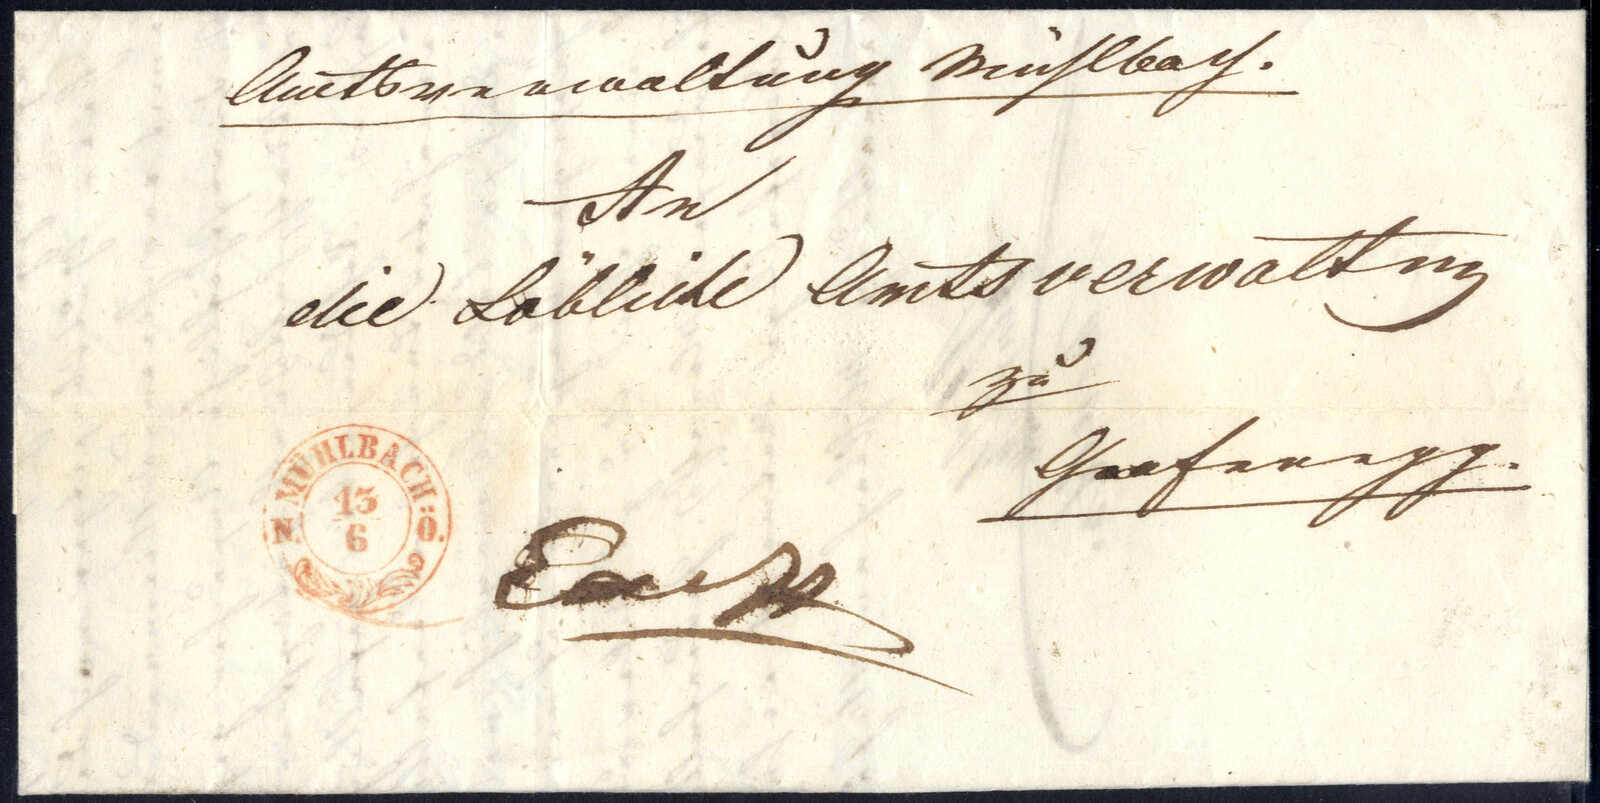 Amtsverwaltung Mühlbach.
An
die Löbliche Amtsverwaltung
zu
Grafenegg.
MÜHLBACH
N. Ö.
13
6